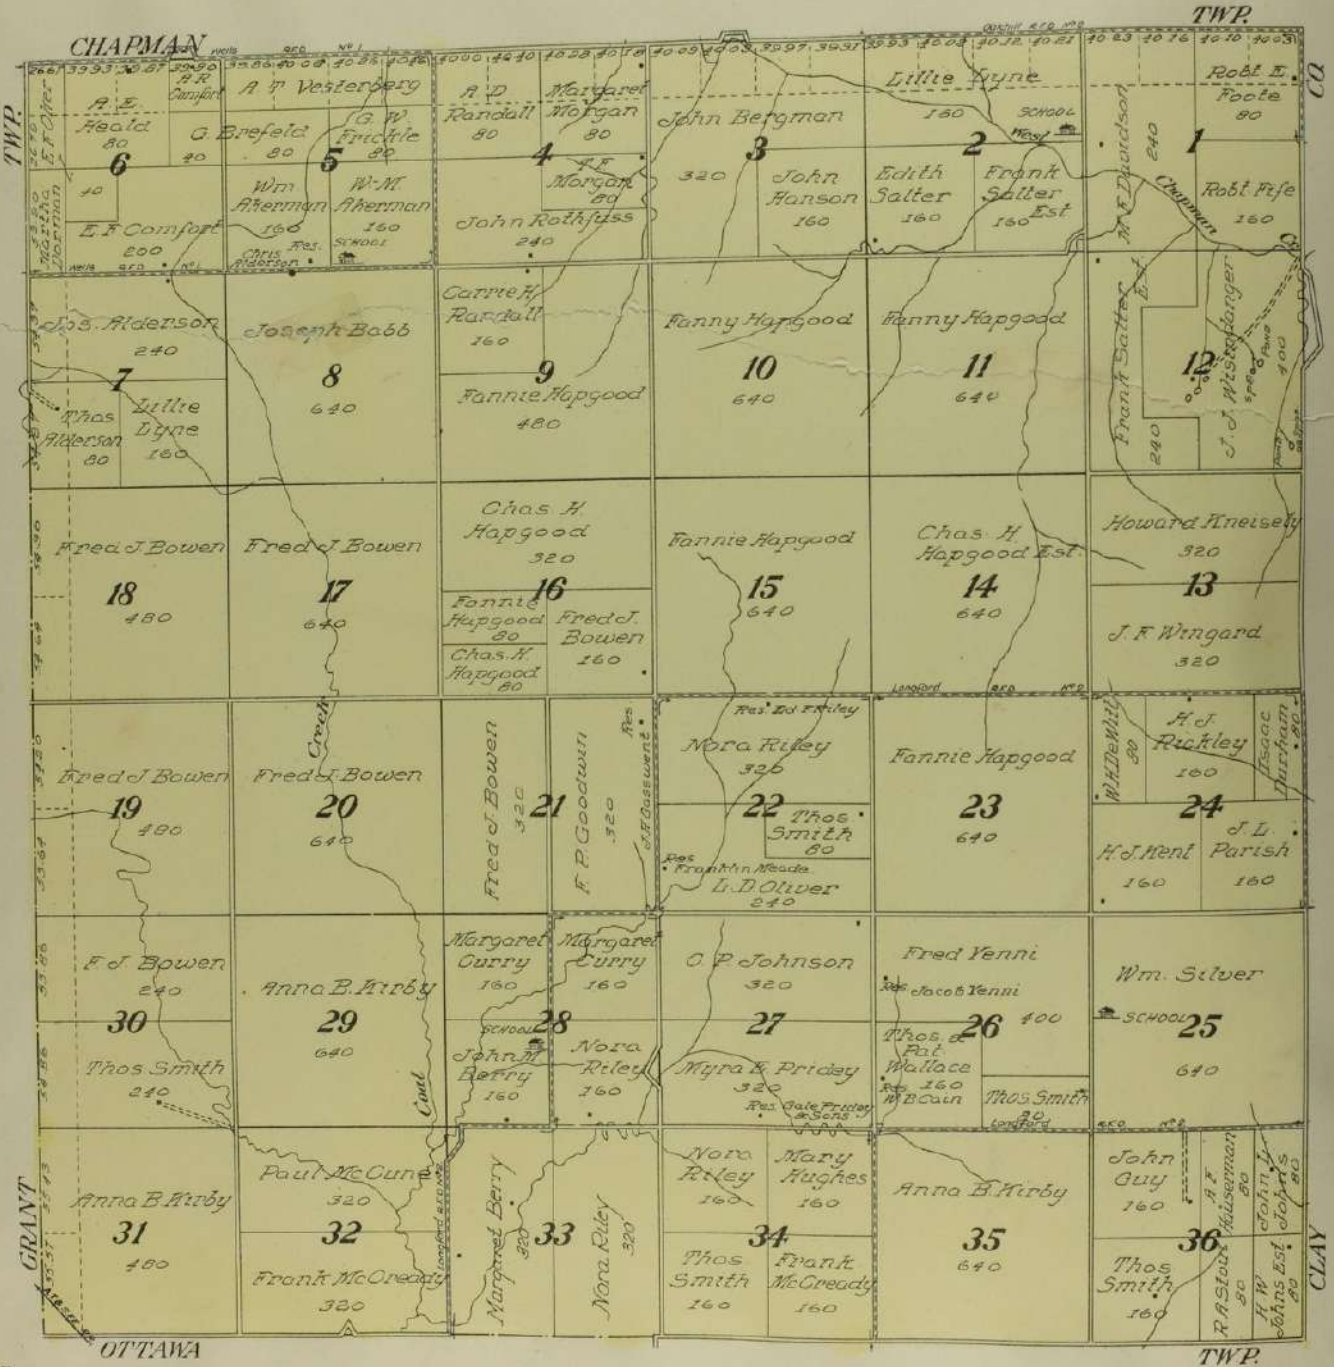 TWP.
CHAPMAN
TWP.
CO
Wells RFD No 1
Oakhill RFD No 2
39 93 39 87 39 90
40 00 40 40 40 28 40 18
40 09 40 03 39 97 39 91
39 93 40 02 40 12 40 21
40 23 40 16 40 10 40 03
E F Oliver
A. E. Heald
80
A R Comfort
40
6
40
Martha Dorman
E. F Comfort
200
Wells RFD No 1
A T Vesterberg
G. Brefeld
80
G W Frickle
80
5
Wm Akerman
160
W-M. Akerman
160
Chris Alderson
Res.
SCHOOL
A D Randall
80
Margaret Morgan
80
4
T F Morgan
80
John Rothfuss
240
John Bergman
3
320
John Hanson
160
Lillie Lyne
160
SCHOOL
2
West
Edith Salter
160
Frank Salter Est
160
M E Davidson
240
Robt E. Foote
80
1
Chapman
Robt Fife
160
Jos. Alderson
240
7
Thos Alderson
80
Lillie Lyne
160
Joseph Babb
8
640
Carrie H. Randall
160
9
Fannie Hapgood
480
Fanny Hapgood
10
640
Fanny Hapgood
11
640
Frank Salter Est.
240
12
J. J. Wisundanger
400
Pond
Fred J. Bowen
18
480
Fred J Bowen
17
640
Chas. H. Hapgood
320
16
Fannie Hapgood
80
Chas. H. Hapgood
80
Fred J. Bowen
160
Fannie Hapgood
15
640
Chas. H. Hapgood Est.
14
640
Longford RFD No 2
Howard Kneisely
320
13
J. F. Wingard
320
Fred J Bowen
19
480
Creek
Fred J Bowen
20
640
Fred J. Bowen
320
21
F. P. Goodwin
320
J.H Gasswent
Res
Res Ed F Riley
Nora Riley
320
22
Thos Smith
80
Res Franklin Meade
L. D. Oliver
240
Fannie Hapgood
23
640
W.H. DeWitt
80
H J. Rickley
160
Isaac Durham
80
24
H. J. Kent
160
J. L. Parish
160
F. J. Bowen
240
30
Thos. Smith
240
Anna B. Kirby
29
640
Coal
Margaret Curry
160
Margaret Curry
160
SCHOOL
28
John M Berry
160
Nora Riley
160
O. P. Johnson
320
27
Myra E Pridey
320
Res Gale Pridey & Sons
Fred Yenni
Res Jacob Yenni
26
400
Thos. & Pat. Wallace
160
Res W B Cain
Thos Smith
80
Longford
RFD No 2
Wm. Silver
SCHOOL
25
640
Anna B. Kirby
31
480
Paul McCune
320
32
Frank McCready
320
Longford RFD No 2
Margaret Berry
320
33
Nora Riley
320
Nora Riley
160
Mary Hughes
160
34
Thos Smith
160
Frank McCready
160
Anna B. Kirby
35
640
John Guy
160
A F Huiseman
80
John L Johns
80
36
Thos Smith
160
R A Stout
80
H W Johns Est
80
GRANT
CLAY
OTTAWA
TWP.